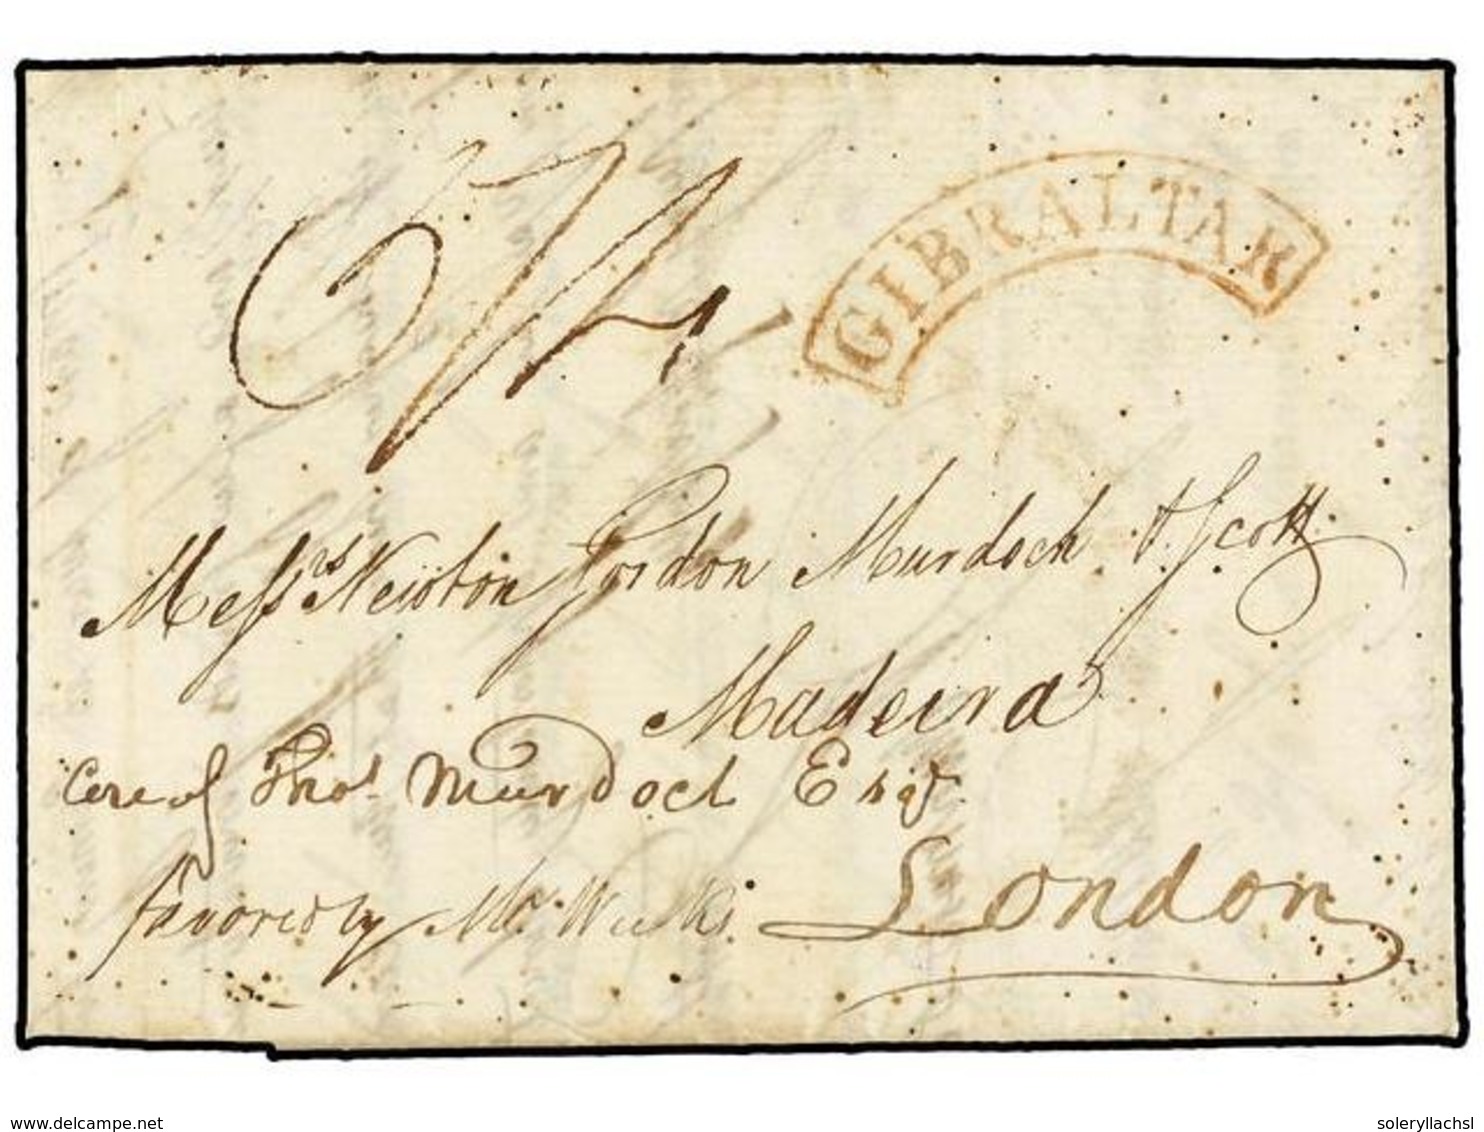 GIBRALTAR
Messrs Newton Gordon Murdoch & Scott.
Madeira
Care of Thos Murdoch Esqr
London
favored by Mr. Weeks
www.delcampe.net
soleryllachsl